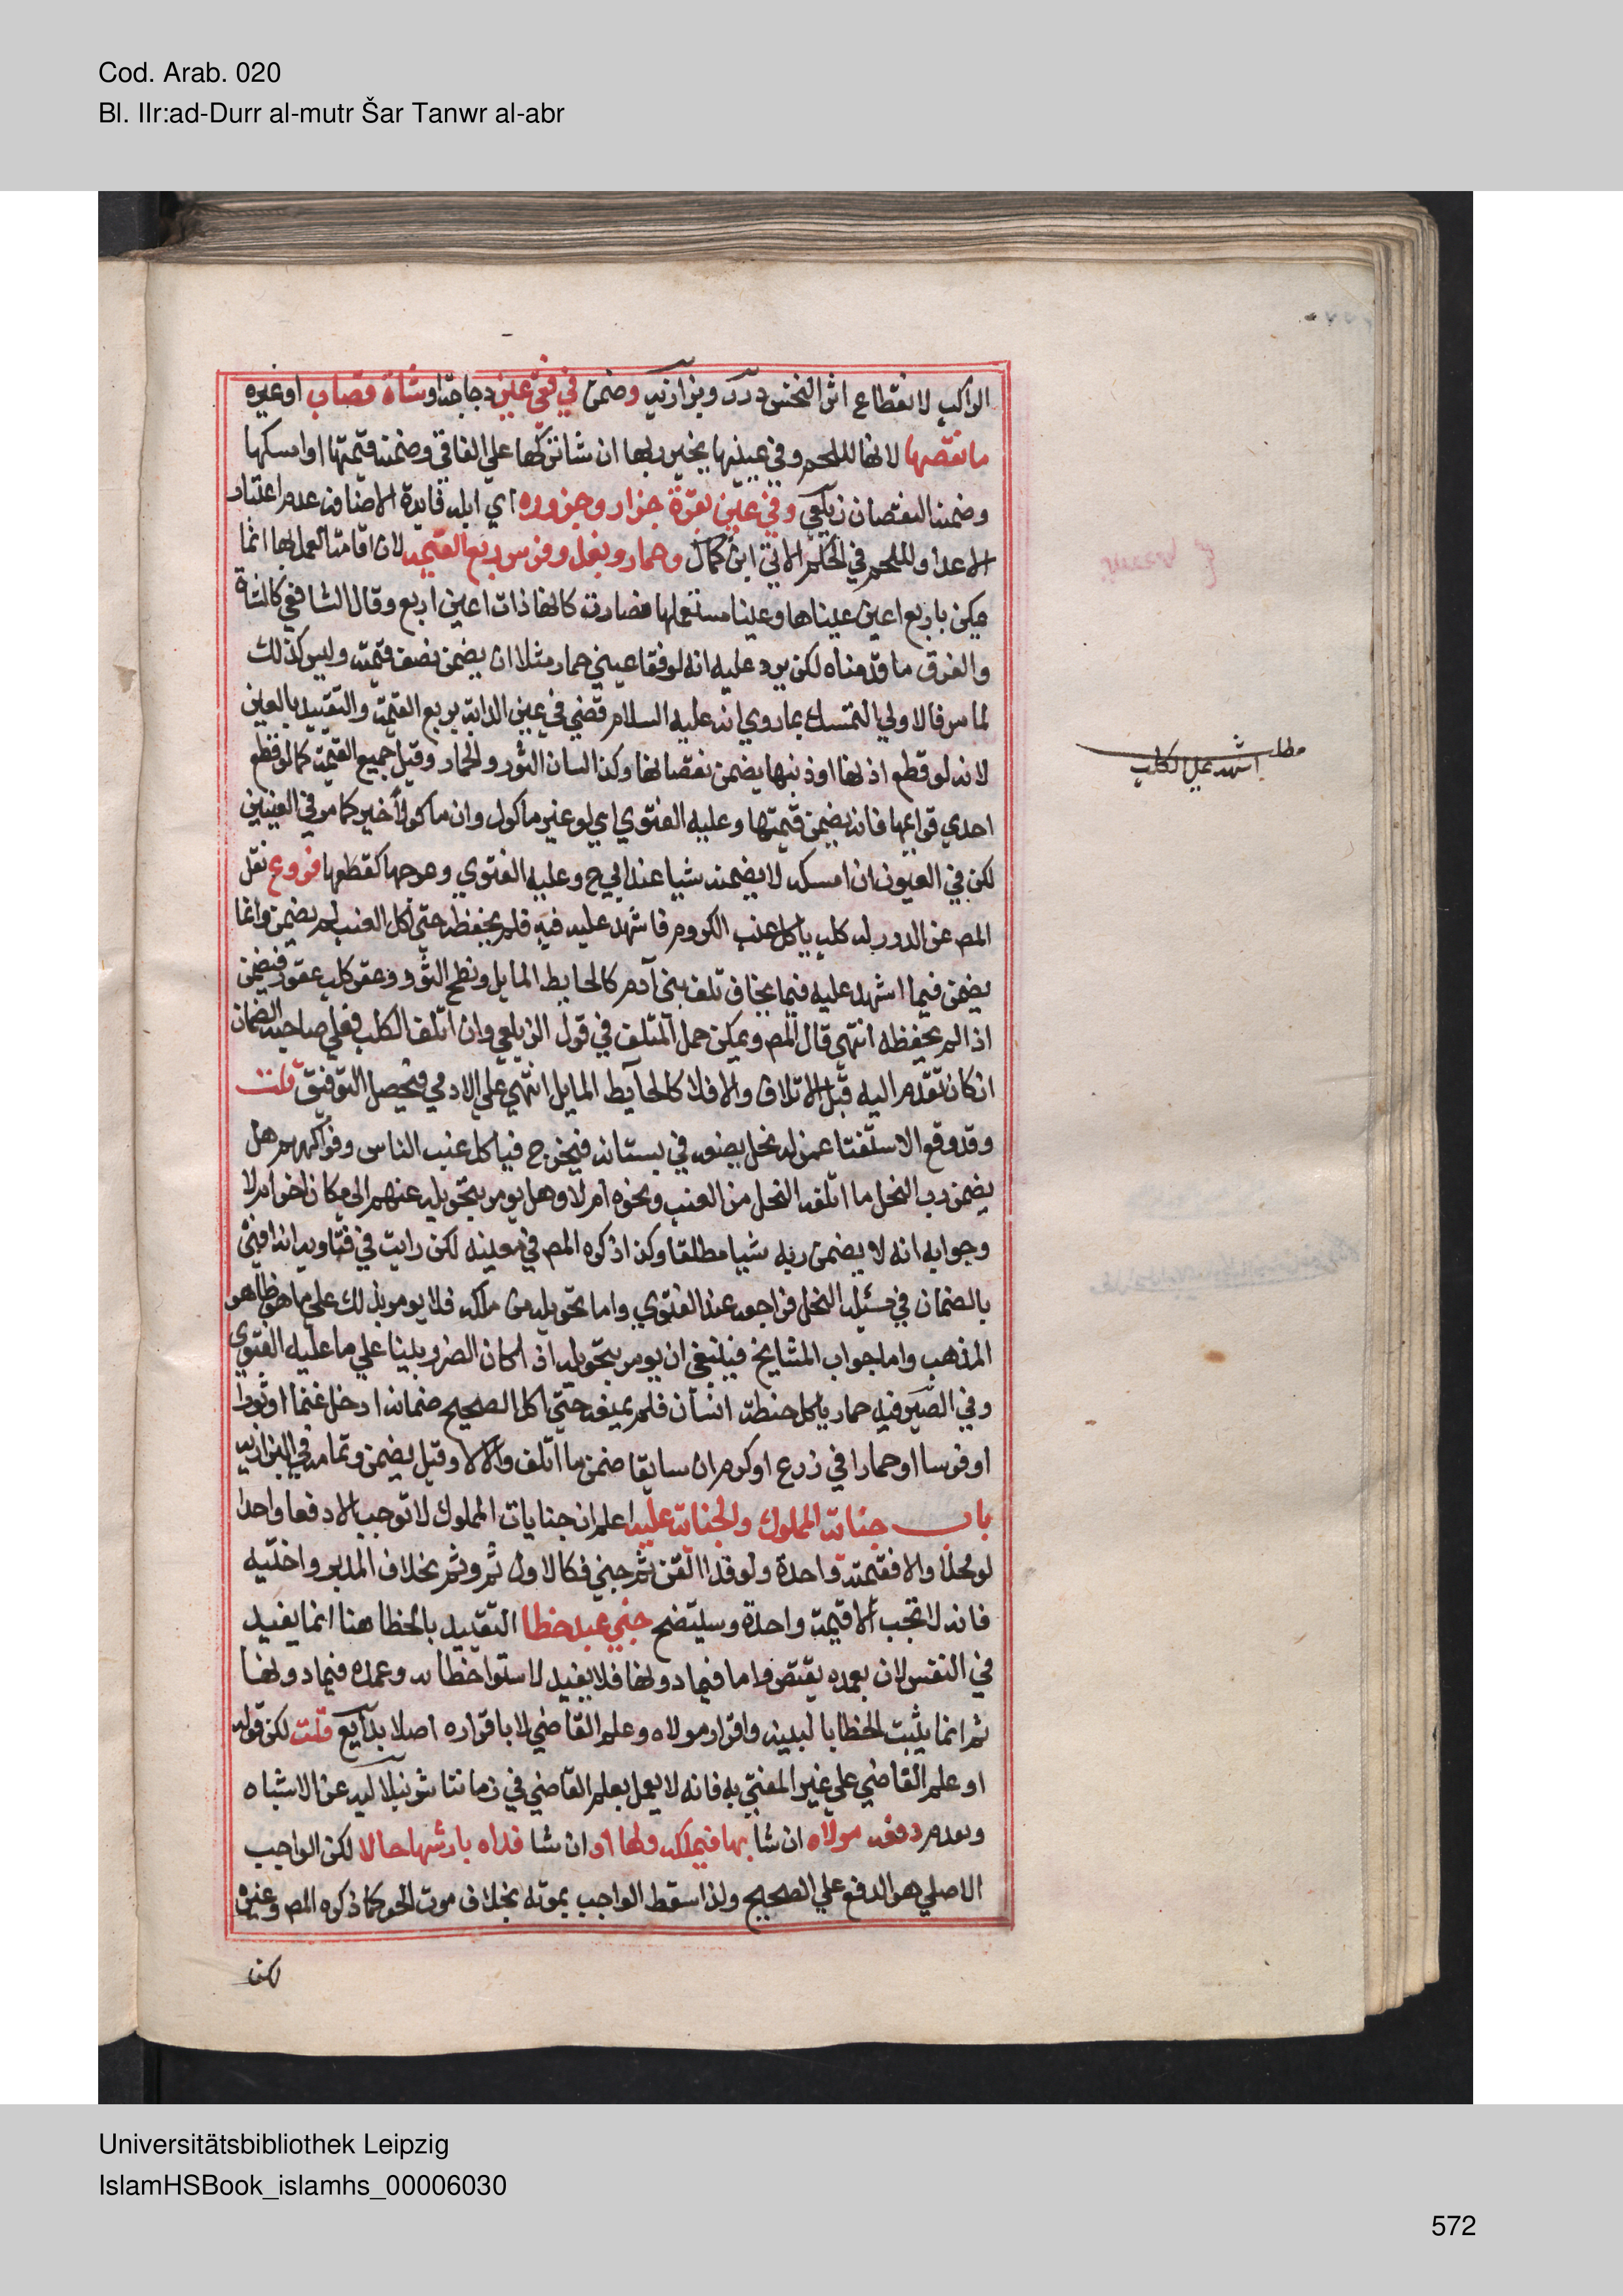 Cod. Arab. 020
Bl. IIr:ad-Durr al-mutr Šar Tanwr al-abr
الراكب لانقطاع اثر النخس درر وبزازية وضمن في فقئ عين دجاجة او شاة قصاب او غيره
ما نقصها لانها للحم وفي عينيها يخير ربها ان شا تركها علي الفاقي وضمنه قيمتها او امسكها
وضمنه النقصان زيلعي وفي عين بقرة جزار وجزوره اي ابله فايدة الاضافة عدم اعتبار
الاعداد للحم في الحكم الاتي ابن كمال وحمار وبغل وفرس ربع القيمة لان اقامة العمل بها انما
يمكن باربع اعين عيناها وعينا مستعملها فصارت كانها ذات اعين اربع وقال الشافعي كالشاة
والفرق ما قدمناه لكن يرد عليه انه لو فقا عيني حمار مثلا ان يضمن نصف قيمته وليس كذلك
لما مر فالاولي التمسك بما روي انه عليه السلام قضي في عين الدابة بربع القيمة والتقييد بالعين
لانه لو قطع اذنها او ذنبها يضمن نقصانها وكذا لسان الثور والحمار وقيل جميع القيمة كما لو قطع
احدي قوايمها فانه يضمن قيمتها وعليه الفتوي اي لو غير ماكول وان ماكولا خير كما مر في العينين
لكن في العيون ان امسكه لا يضمنه شيا عند ابي ح وعليه الفتوي وعرجها كقطعها فروع نقل
المص عن الدرر له كلب ياكل عنب الكروم فاشهد عليه فيه فلم يحفظه حتي اكل العنب لم يضمن وانما
يضمن فيما اشهد عليه فيما يخاف تلف بني آدم كالحايط المايل ونطح الثور وعقر كلب عقور فيضمن
اذا لم يحفظه انتهي قال المص ويمكن حمل المتلف في قول الزيلعي وان اتلف الكلب فعلي صاحبه الضمان
ان كان تقدم اليه قبل الاتلاف والا فلا كالحايط المايل انتهي علي الادمي فيحصل التوفيق قلت
وقد وقع الاستفتا عمن له نحل يضعه في بستانه فيخرج فياكل عنب الناس وفواكههم هل
يضمن رب النحل ما اتلفه النحل من العنب ونحوه ام لا وهل يومر بتحويله عنهم الي مكان اخر ام لا
وجوابه انه لا يضمن ربه شيا مطلقا وكذا ذكره المص في معينه لكن رايت في فتاويه انه افتي
بالضمان في مسئلة النحل فراجعه عند الفتوي واما تحويله من ملكه فلا يومر بذلك علي ما هو ظاهر
المذهب واما جواب المشايخ فينبغي ان يومر بتحويله اذا كان الضرر بينا علي ما عليه الفتوي
وفي الصيرفية حمار ياكل حنطة انسان فلم يمنعه حتي اكل الصحيح ضمانه ادخل غنما او ثورا
او فرسا او حمارا في زرع او كرم ان سايقا ضمن ما اتلف والا لا وقيل يضمن وتمامه في البزازية
باب جناية المملوك والجناية عليه اعلم ان جنايات المملوك لا توجب الا دفعا واحدا
لو محلا والا فقيمته واحدة ولو فدا القن ثم جني فكالاول ثم وثم بخلاف المدبر واختيه
فانه لا تجب الا قيمة واحدة وسيتضح جني عبد خطا التقييد بالخطا هنا انما يفيد
في النفس لان بعمده يقتص واما فيما دونها فلا يفيد لاستوا خطائه وعمده فيما دونها
ثم انما يثبت الخطا بالبينة واقرار مولاه وعلم القاضي لا باقراره اصلا بدايع قلت لكن قوله
او علم القاضي علي غير المفتي به فانه لا يعمل بعلم القاضي في زماننا شرنبلالية عن الاشباه
وتقدم دفعه مولاه ان شا بها فيملكه وليها او ان شا فداه بارشها حالا لكن الواجب
الاصلي هو الدفع علي الصحيح ولذا سقط الواجب بموته بخلاف موت الحر كما ذكره المص وغيره
لكن
مطلب
اشهد علي الكلب
Universitätsbibliothek Leipzig
IslamHSBook_islamhs_00006030
572